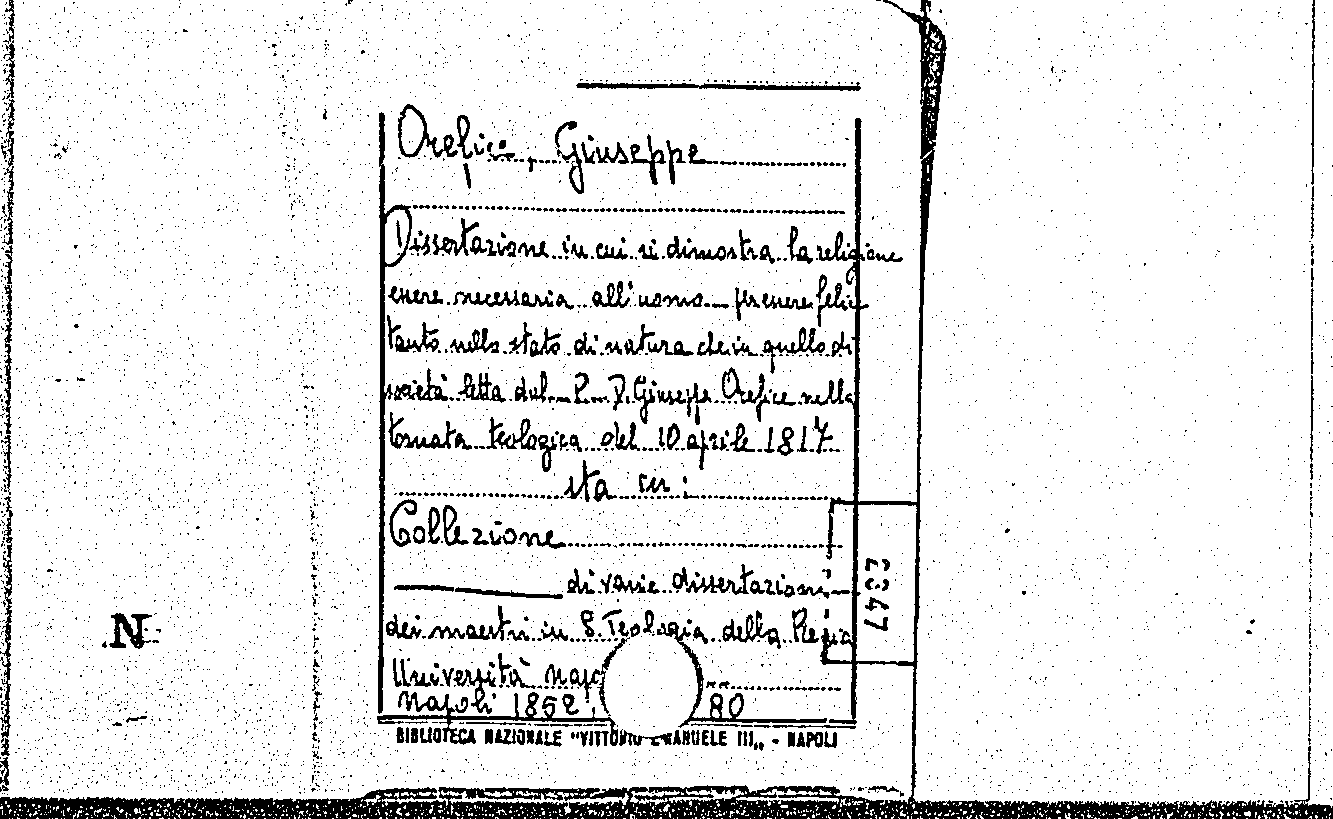 Orefice, Giuseppe
Dissertazione in cui si dimostra la religione
essere necessaria all'uomo per essere felice
tanto nello stato di natura che in quello di
società letta dal P. D. Giuseppe Orefice nella
tornata teologica del 10 aprile 1817
sta in:
Collezione
di varie dissertazioni
dei maestri in S. Teologia della Regia
Università
Napoli 1852 80
BIBLIOTECA NAZIONALE "VITTORIO EMANUELE III„ - NAPOLI
N
2347